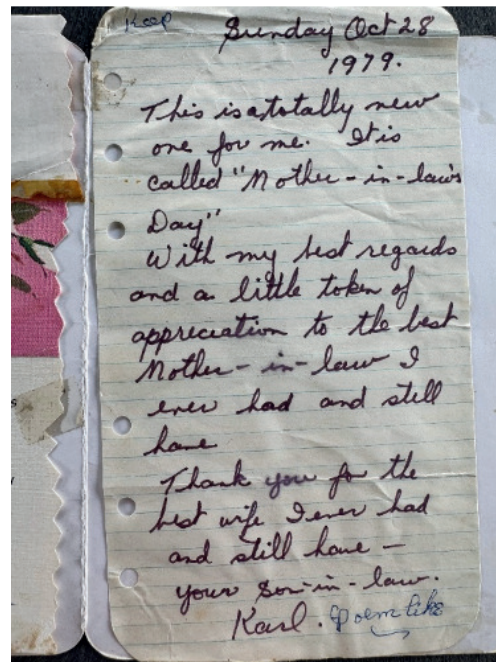 Keep
Sunday Oct 28
1979.
This is a totally new
one for me. It is
called "Mother-in-law's
Day"
With my best regards
and a little token of
appreciation to the best
Mother-in-law I
ever had and still
have
Thank you for the
best wife I ever had
and still have –
your son-in-law.
Karl. Poem like